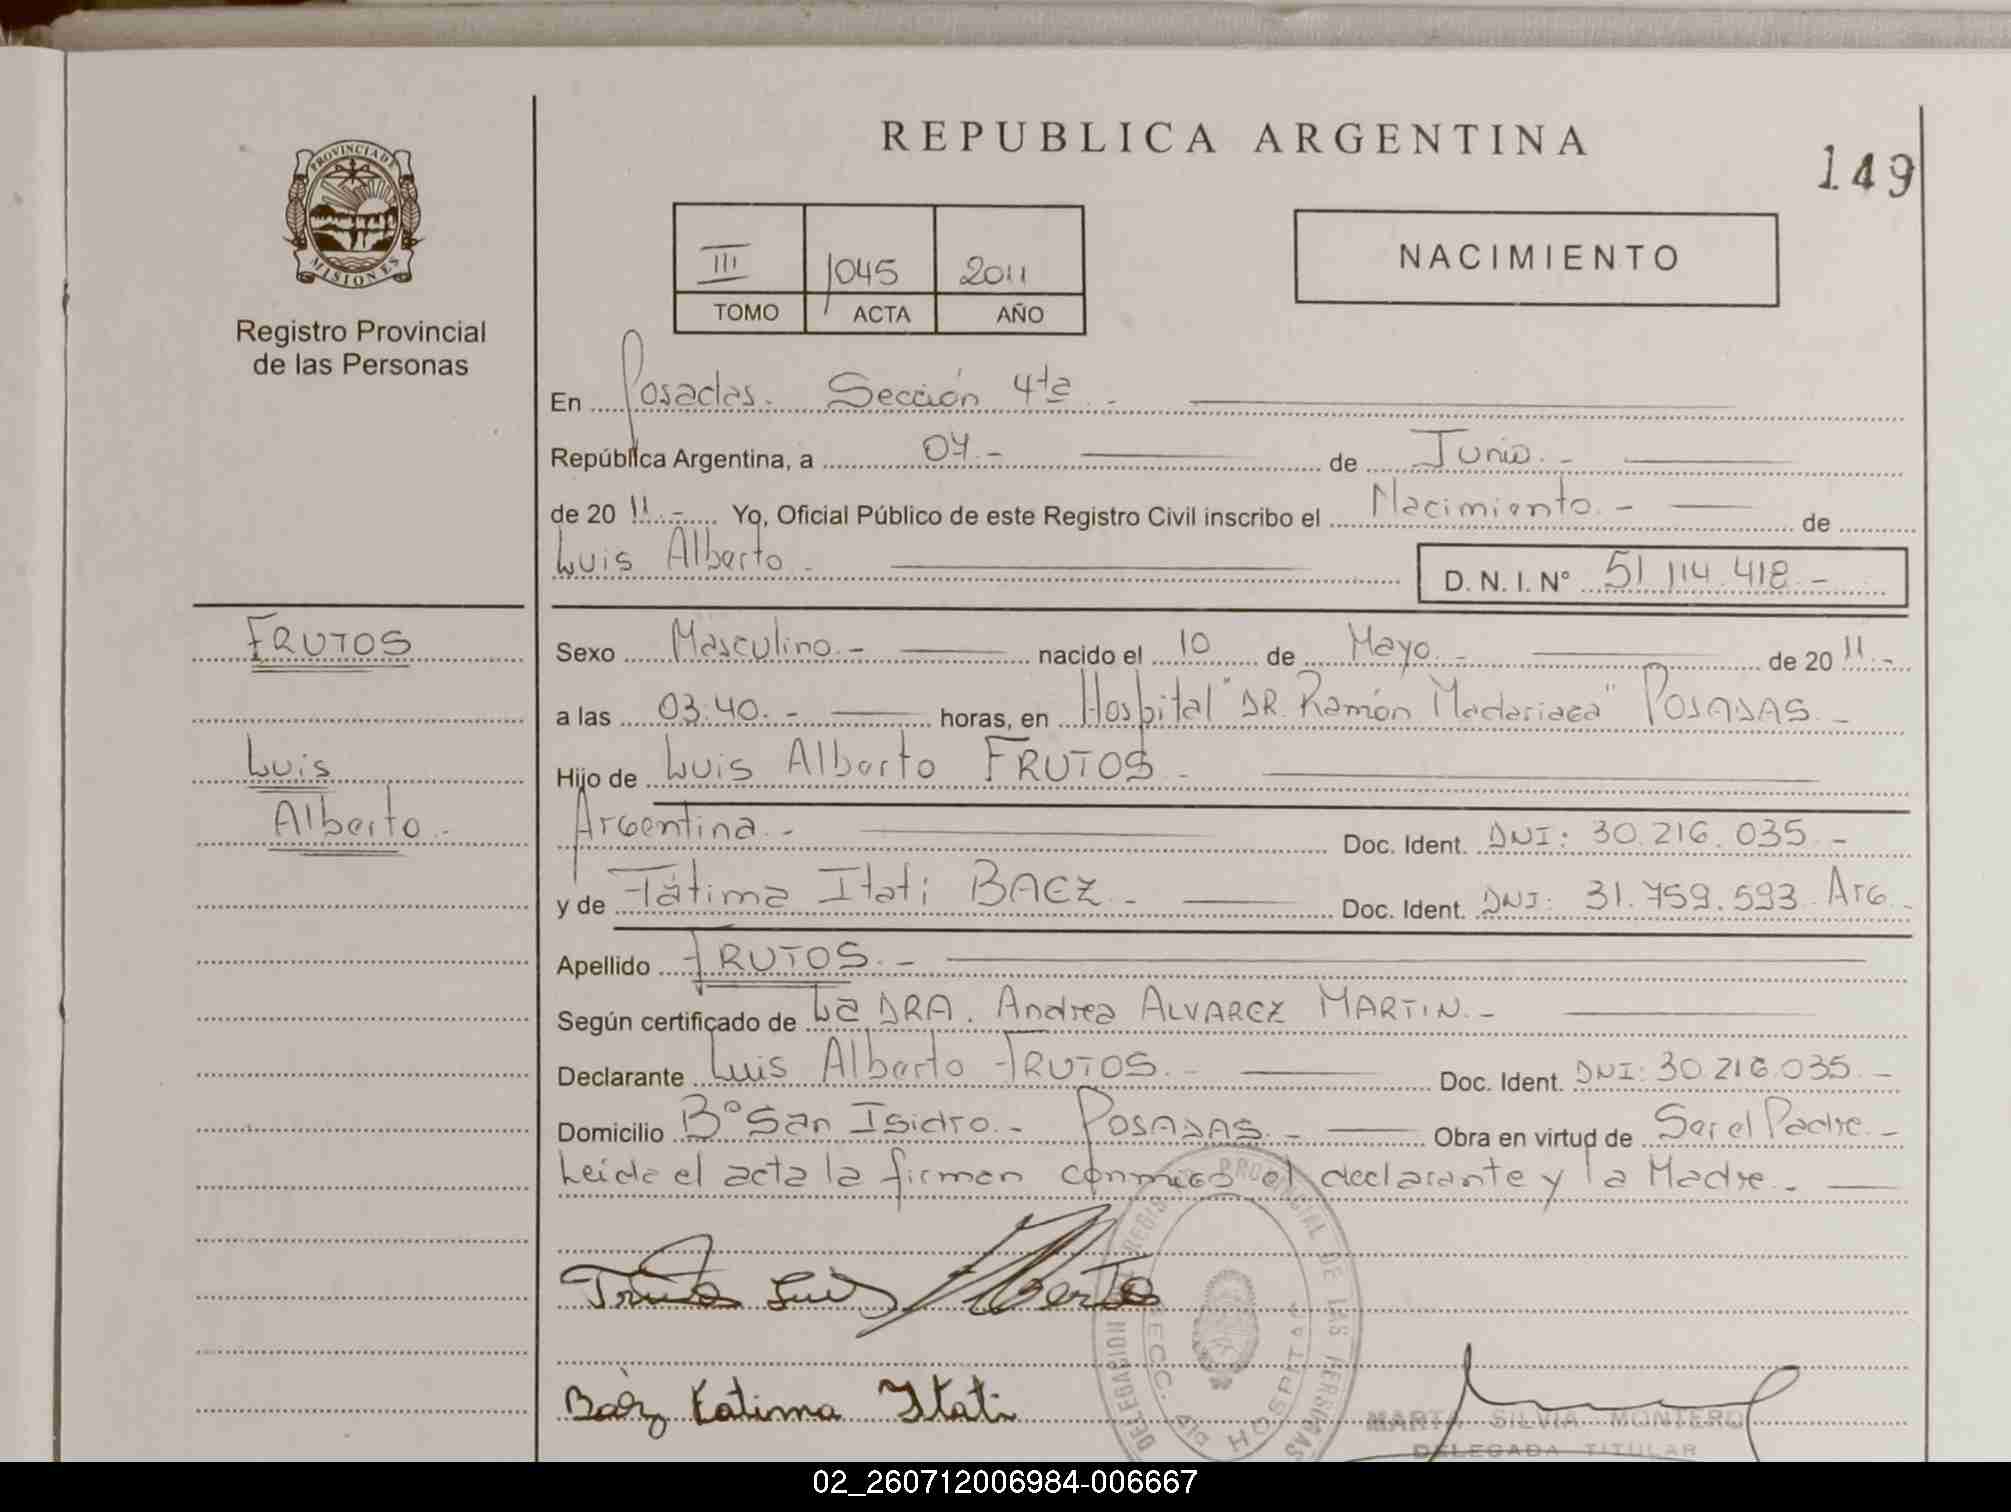 REPUBLICA ARGENTINA
149
PROVINCIA DE
MISIONES
Registro Provincial
de las Personas
III 1045 2011
TOMO ACTA AÑO
NACIMIENTO
En Posadas. Sección 4ta -
República Argentina, a 07.- de Junio.-
de 20 11.- Yo, Oficial Público de este Registro Civil inscribo el Nacimiento.- de
Luis Alberto.- D. N. I. N° 51.114.418.-
FRUTOS
Luis
Alberto.-
Sexo Masculino.- nacido el 10 de Mayo.- de 20 11.-
a las 03:40.- horas, en Hospital "DR. Ramón Madariaga" POSADAS.-
Hijo de Luis Alberto FRUTOS.-
Argentina.- Doc. Ident. DNI: 30.216.035.-
y de Fátima Itati BAEZ.- Doc. Ident. DNI: 31.759.593 Arg.-
Apellido FRUTOS.-
Según certificado de La DRA. Andrea ALVAREZ MARTIN.-
Declarante Luis Alberto FRUTOS.- Doc. Ident. DNI: 30.216.035.-
Domicilio B° San Isidro.- POSADAS.- Obra en virtud de Ser el Padre.-
Leida el acta la firman conmigo el declarante y la Madre.-
Frutos Luis Alberto
Baéz Fatima Itati
DELEGACION REGISTRO PROVINCIAL DE LAS PERSONAS
SECC. HOSPITAL
MARTA SILVIA MONTERO
DELEGADA TITULAR
02_260712006984-006667